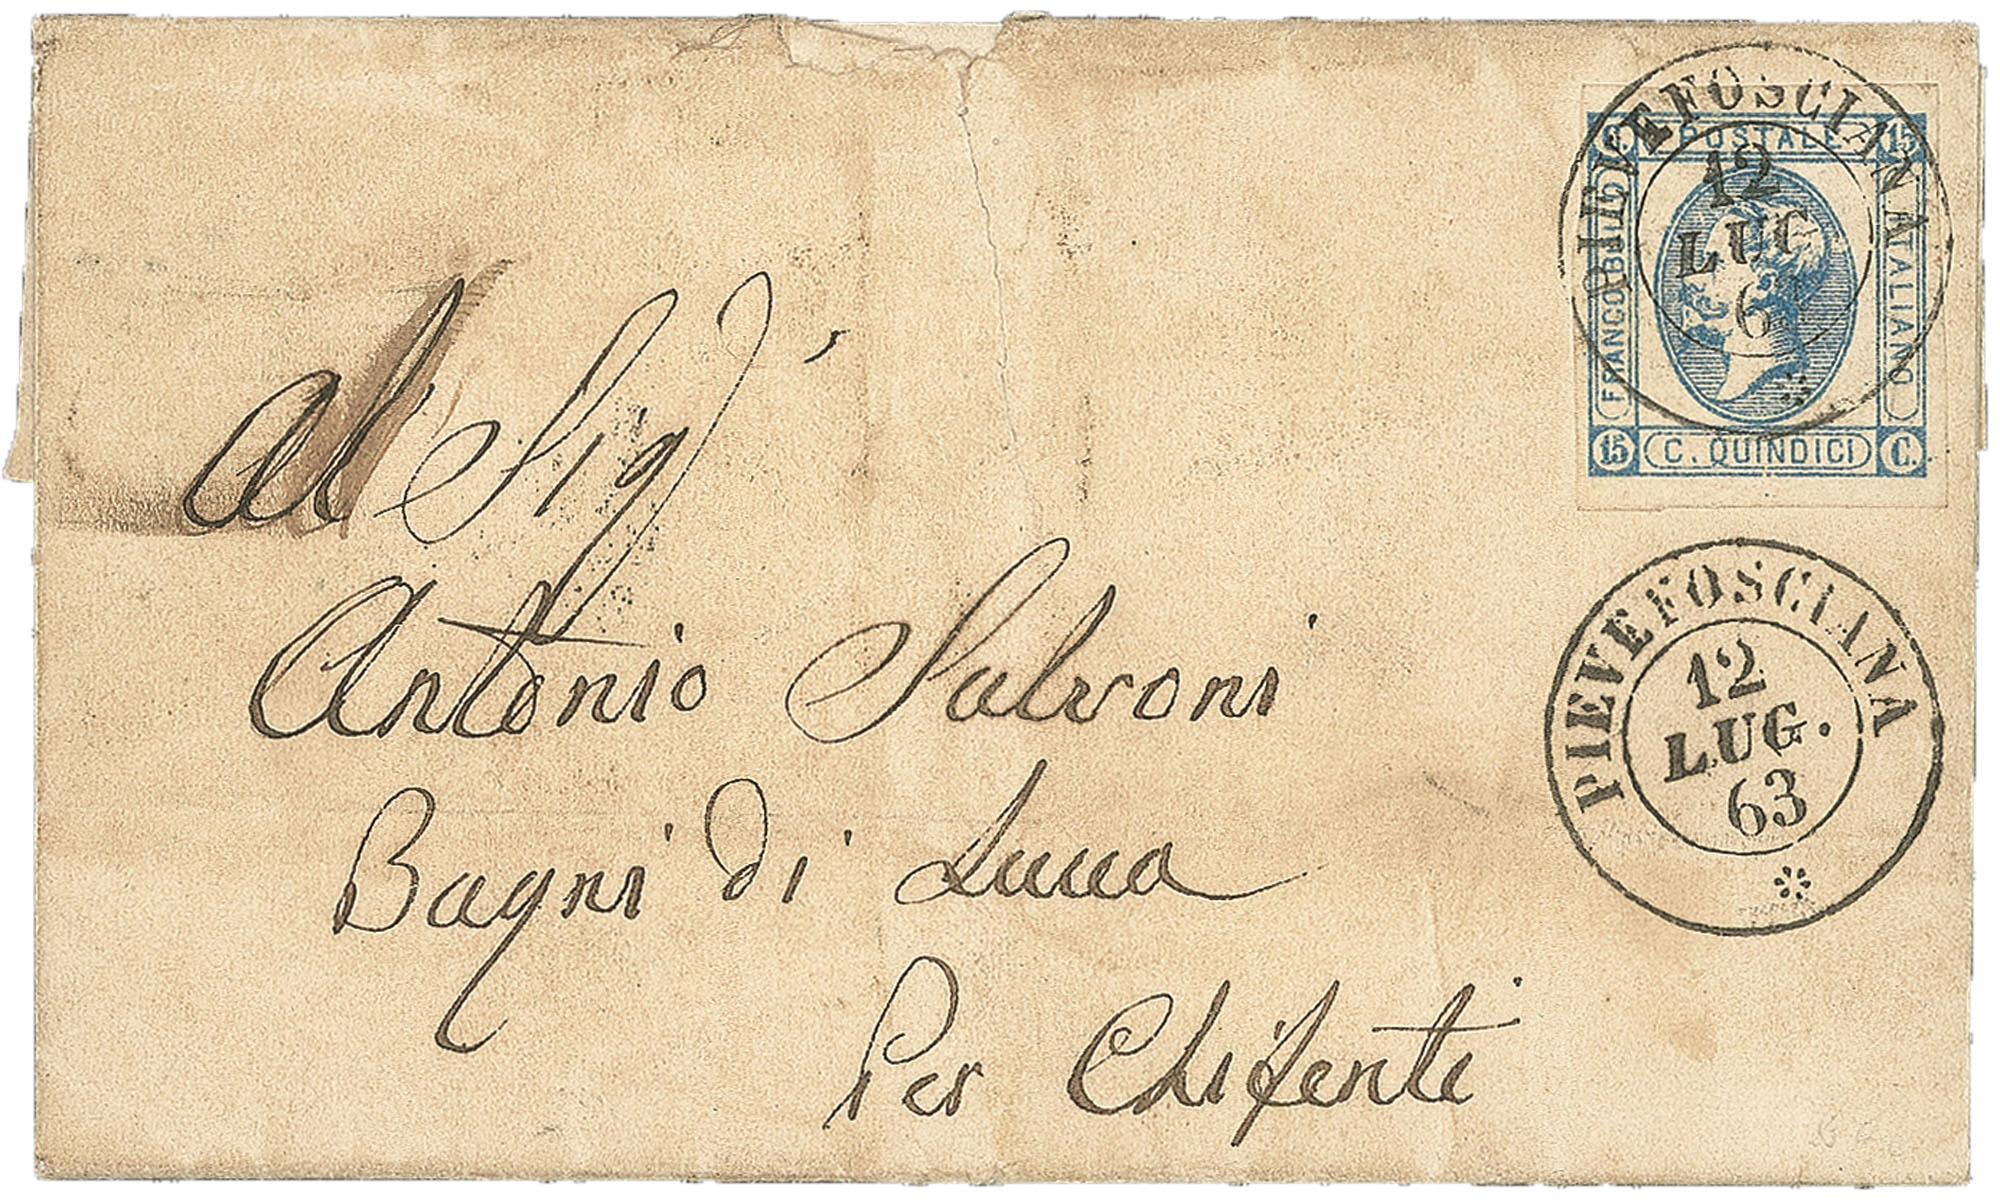 PIEVEFOSCIANA
12
LUG
6
C. POSTALE 15
FRANCO BOLLO
ITALIANO
15 C. QUINDICI C.
Al Sigr
Antonio Salvoni
Bagni di Lucca
Per Chifenti
PIEVEFOSCIANA
12
LUG.
63